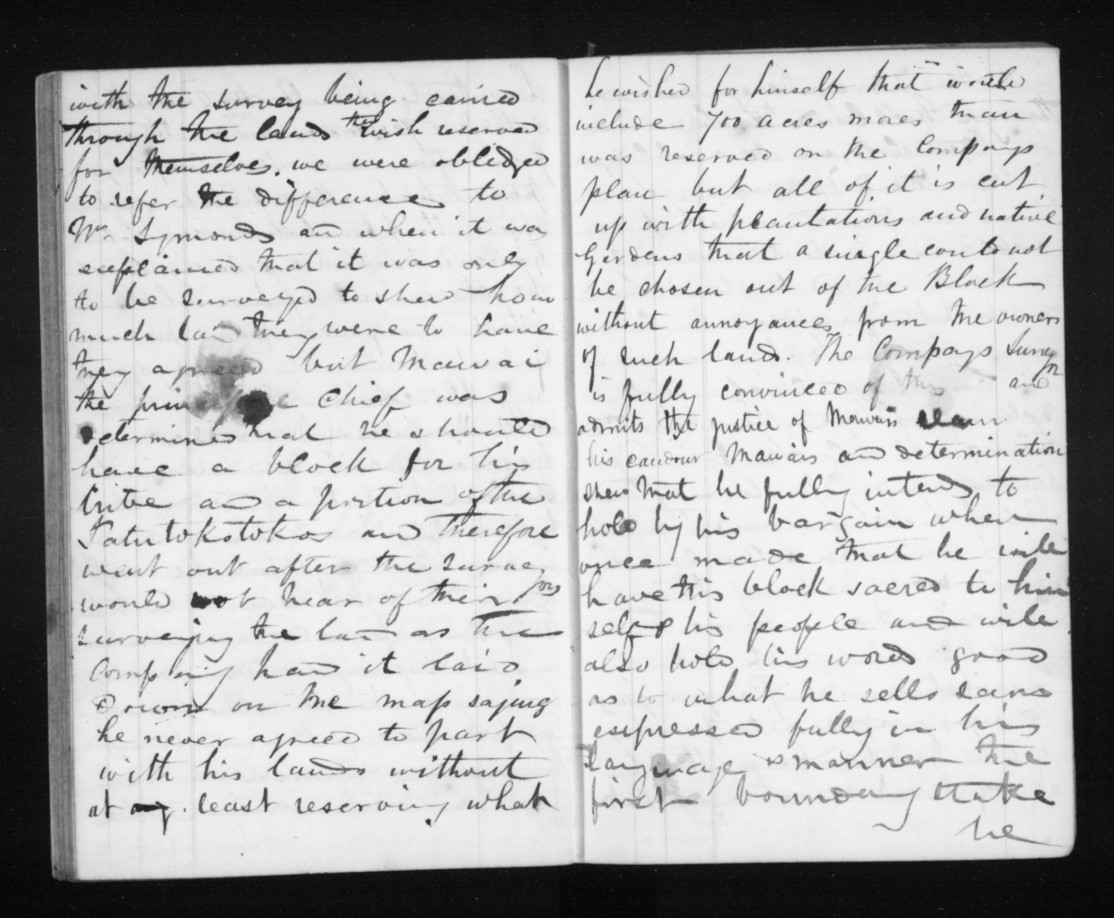 with the survey being carried
through the lands they wish reserved
for themselves. we were obliged
to refer the difference to
Mr. Symonds and when it was
explained that it was only
to be surveyed to shew how
much land they were to have
they agreed but Mawai
the chief was
determined that he should
have a block for his
tribe and a portion of the
Patutokotokos and therefore
went out after the survey
would not hear of their
surveying the land as the
Company had it laid
down on the map saying
he never agreed to part
with his lands without
at least reserving what
he wished for himself that would
include 700 acres mores than
was reserved on the Companys
plan but all of it is cut
up with plantations and native
Gardens that a single could not
be chosen out of the Block
without annoyances from the owners
of such lands. The Companys Surveyor
is fully convinced of this and
admits the justice of Mawais
his candour Mawais and determination
shew that he fully intends to
hold by his bargain when
once made that he will
have this block sacred to him
self & his people and will
also hold his word good
as to what he sells
expressed fully in his
language & manner the
first boundary stake
he